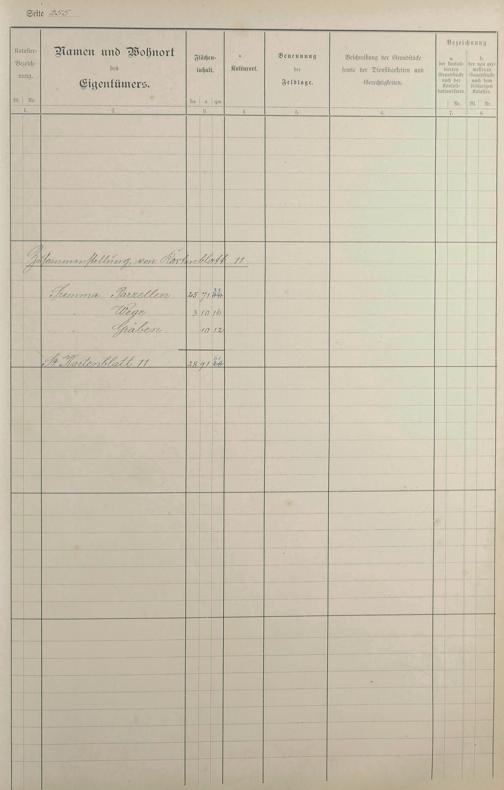 Seite 255
Kataster-
Bezeich-
nung.
Bl. Nr.
Namen und Wohnort
des
Eigentümers.
Flächen-
inhalt.
ha a qm
Kulturart.
Benennung
der
Feldlage.
Beschreibung der Grundstücke
sowie der Dienstbarkeiten und
Gerechtigkeiten.
Bezeichnung
a.
Nr.
b.
der neu ver-
Grundstücke
nach dem
bisherigen
Kataster.
Bl. Nr.
1. 2. 3. 4. 5. 6. 7. 8.
Zusammenstellung von Kartenblatt 11
Summa Parzellen 25 71
Wege 3 10 16
Gräben 10 12
Kartenblatt 11 28 91